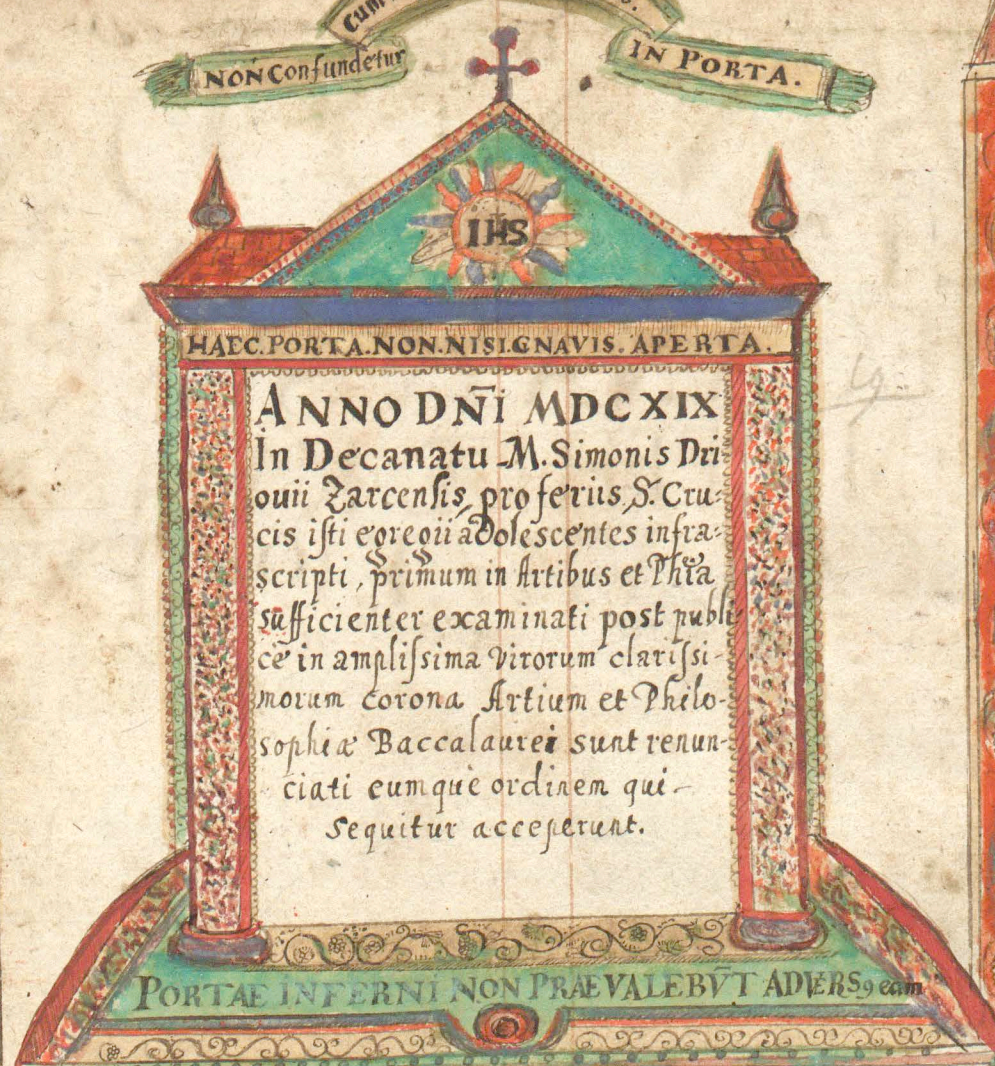 Cum
NON Confundetur
IN PORTA.
IHS
HAEC.PORTA.NON.NISI.GNAVIS.APERTA.
ANNO DN̄I MDCXIX
In Decanatu M. Simonis Dri
ouii Zarcensis, pro feriis, S. Cru-
cis iſti egregii adolescentes infra-
scripti, primum in Artibus et Phīa
sufficienter examinati post publi
ce in ampliſsima virorum clariſsi-
morum corona Artium et Philo-
sophiæ Baccalaurei sunt renun-
ciati eumque ordinem qui
sequitur acceperunt.
PORTAE INFERNI NON PRAEVALEBV̄T ADVERSꝰ eam